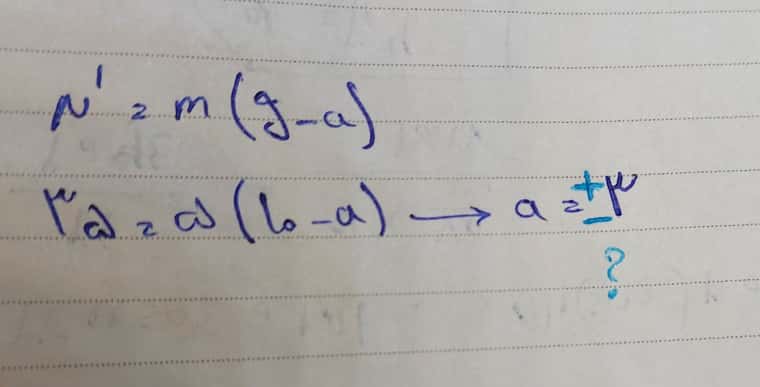 N' = m (g - a)
۳۵ = ۵ (۱۰ - a) → a = ± ۳
?